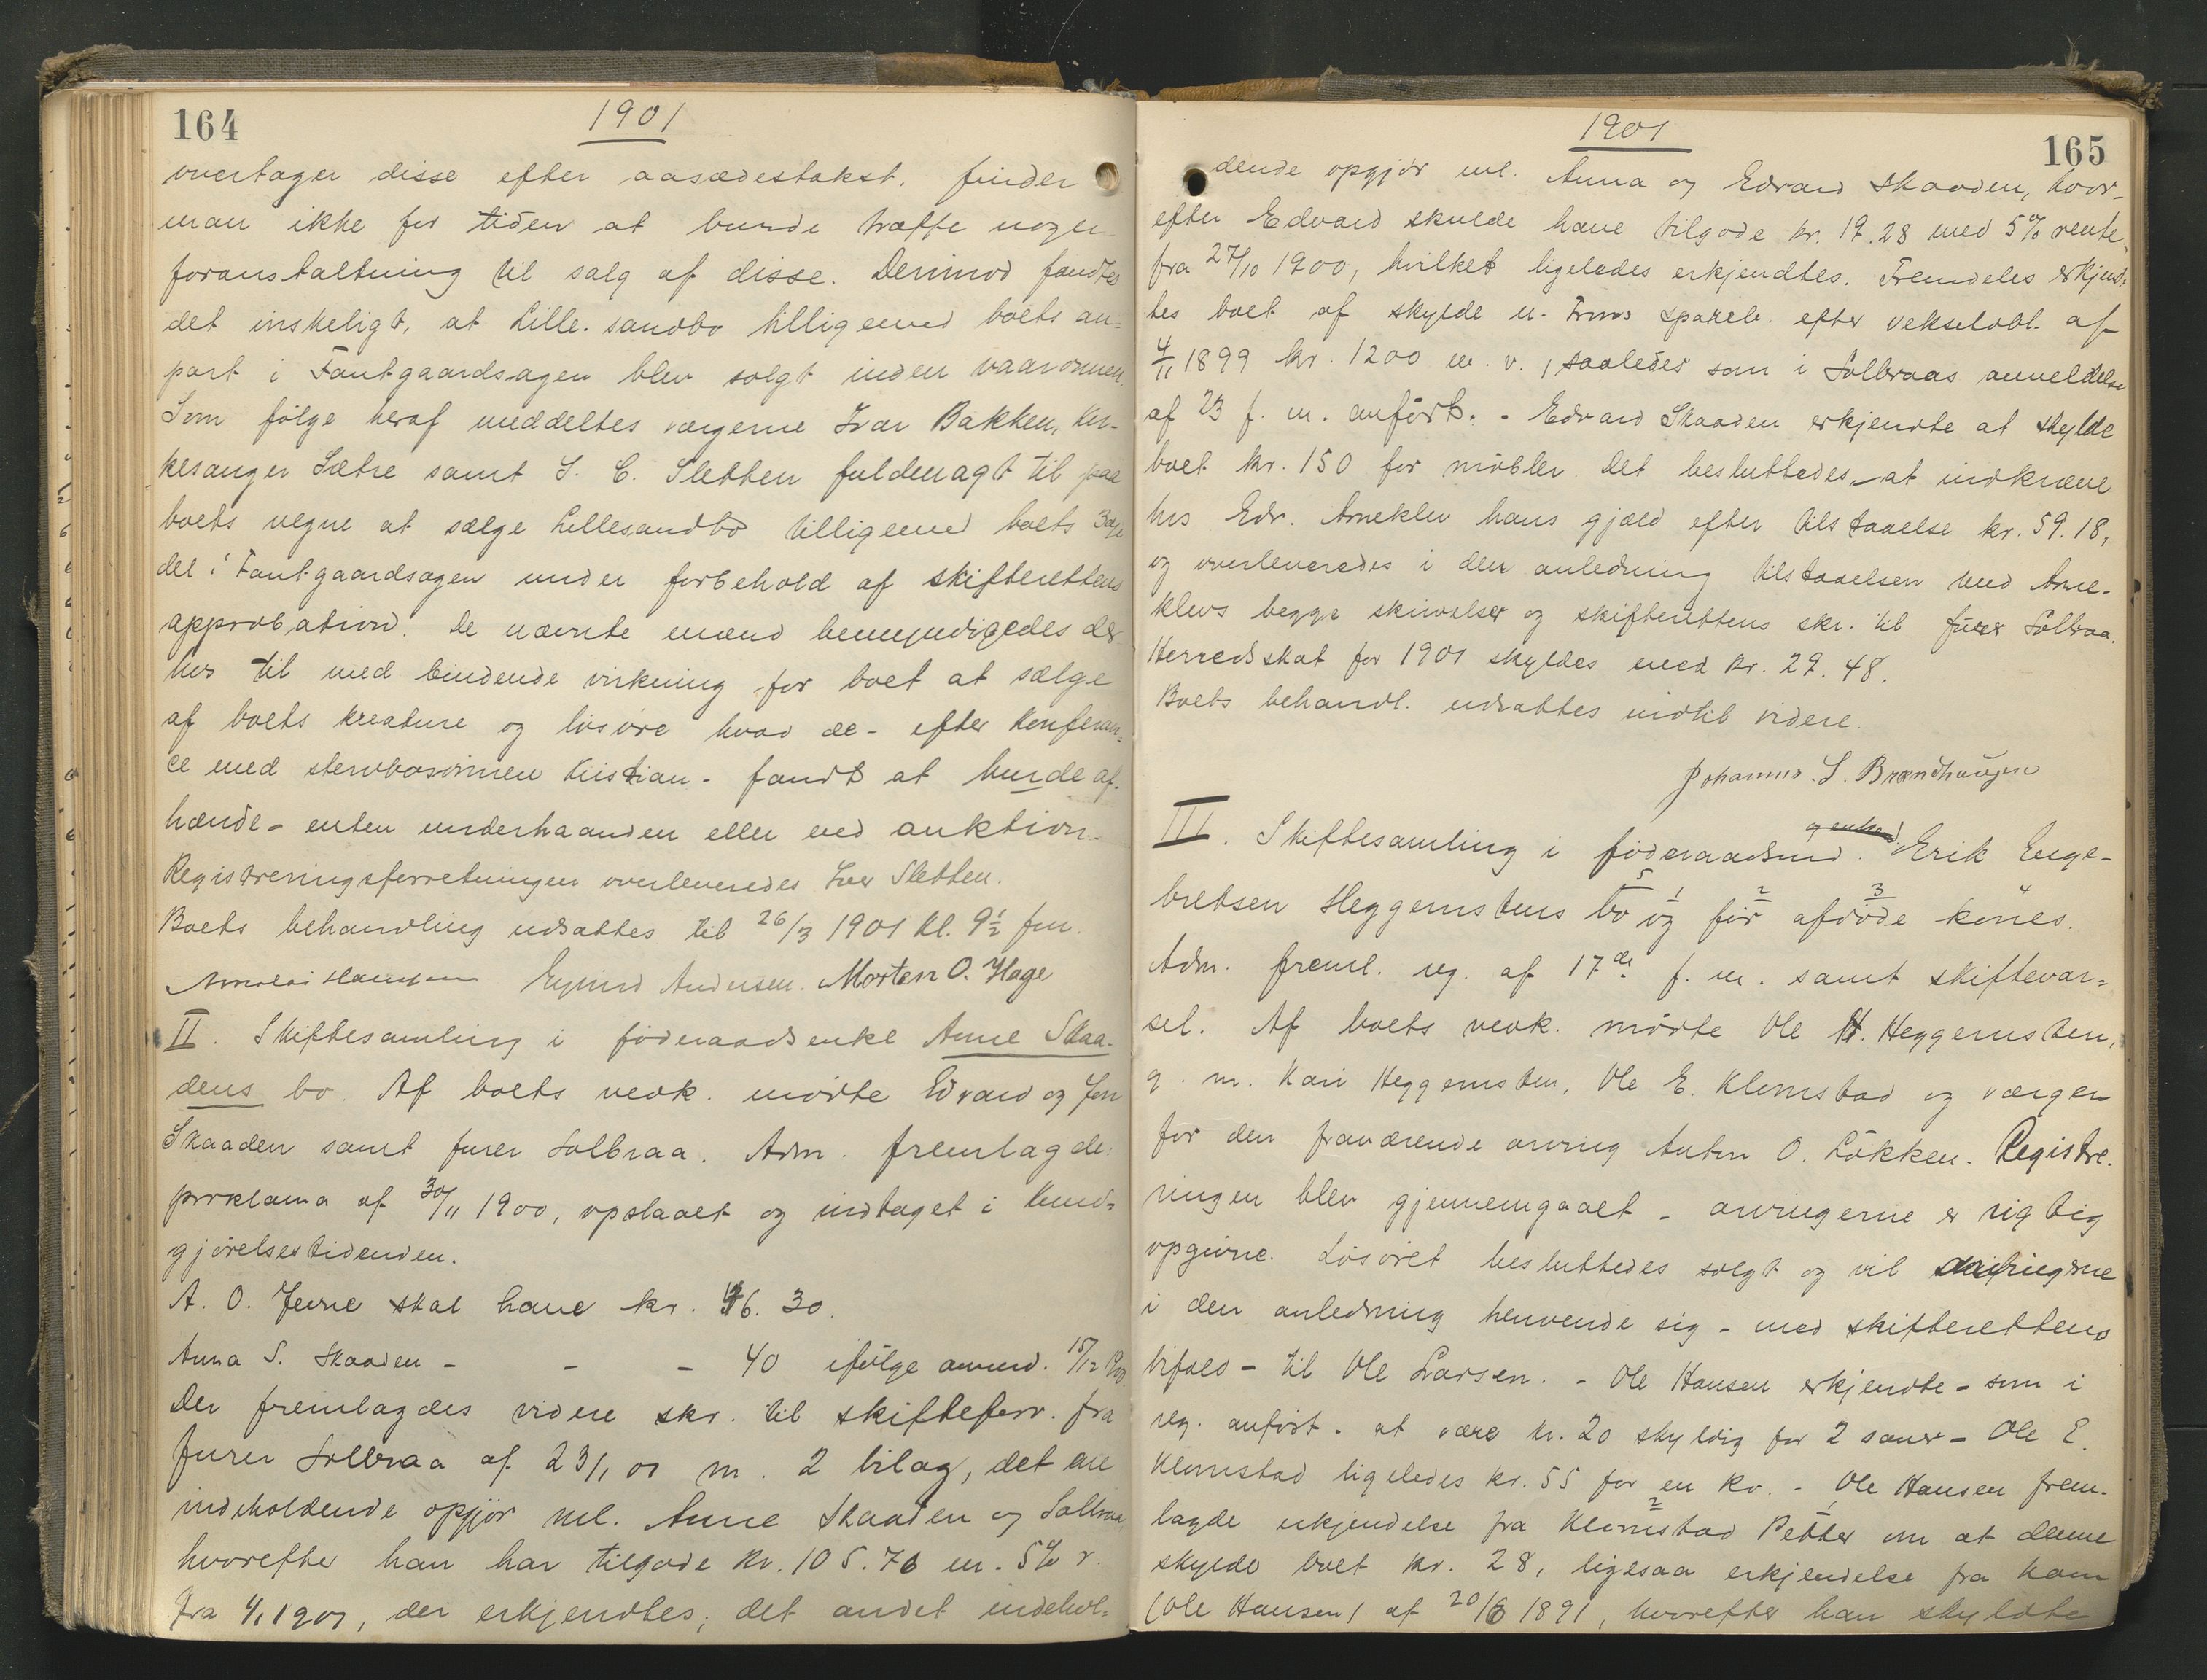 164
1901
overtager disse efter aasædestakst, finder
man ikke for tiden at burde træffe nogen
foranstaltning til salg af disse. Derimod fandtes
det ønskeligt, at Lille-sandbo tilligemed boets an=
part i Fantgaardsagen blev solgt inden vaaronnen.
Som følge heraf meddeltes værgerne Ivar Bakken, kir-
kesanger Sætre samt S. C. Sletten fuldmagt til paa
boets vegne at sælge Lillesandbo tilligemed boets
del i Fantgaardsagen under forbehold af skifterettens
approbation. De nævnte mænd bemyndigedes der
hos til med bindende virkning for boet at sælge
af boets kreature og løsøre hvad de - efter konferan=
ce med stervbosønnen Kristian - fandt at burde af-
hænde - enten underhaanden eller ved auktion.
Registreringsforretningen overleveredes Sletten.
Boets behandling udsattes til 26/3 1901 kl. 9½ fm.
Ejvind Andersen. Morten O. Hage
II. Skiftesamling i føderaadsenke Anne Skaa-
dens bo. Af boets vedk. mødte Edvard og Jon
Skaaden samt furer Solbraa. Adm. fremlagde:
proklama af 30/11 1900, opslaaet og indtaget i kund=
gjørelsestidenden.
A. O. skal have kr. 30.
Anna S. Skaaden - - - 40 ifølge anmd. 15/12 1900
Der fremlagdes videre skr. til skifteforv. fra
furer Solbraa af 23/1 01 m. 2 bilag, det ene
indeholdende opgjør ml. Anne Skaaden og Solbraa,
hvorefter han har tilgode kr. 105.76 m. 5% r.
fra 1/1 1901, der erkjendtes; det andet indehol=
1901
165
dende opgjør ml. Anna og Edvard Skaaden, hvor-
efter Edvard skulde have tilgode kr. 19.28 med 5% rente
fra 27/10 1900, hvilket ligeledes erkjendtes. Fremdeles erkjend=
tes boet at skylde n. Frons spareb. efter vekselobl. af
4/11 1899 kr. 1200 m. v., saaledes som i Solbraas anmeldelse
af 23 f. m. anført. - Edvard Skaaden erkjendte at skylde
boet kr. 150 for møbler. Det besluttedes at indkræve
hos Edv. Arneklev hans gjæld efter tilstaaelse kr. 59.18,
og overleveredes i den anledning tilstaaelsen med Arne-
klevs begge skrivelser og skifterettens skr. til furer Solbraa.
Herredsskat for 1901 skyldes med kr. 29.48.
Boets behandl. udsattes indtil videre.
Johannes S. Brændhaugen
III. Skiftesamling i føderaadsmd. Erik Enge-
bretsen Heggernstens bo og før afdøde kones.
Adm. freml. reg. af 17de f. m. samt skiftevar=
sel. Af boets vedk. mødte Ole H. Heggernsten,
g. m. Kari Heggernsten, Ole E. Klomstad og værgen
for den fraværende arving Anton O. Løkken. Registre-
ringen blev gjennemgaaet - arvingerne er rigtig
opgivne. Løsøret besluttedes solgt og vil arvingerne
i den anledning henvende sig - med skifterettens
bifald - til Ole Larsen. - Ole Hansen erkjendte - som i
reg. anført - at være kr. 20 skyldig for 2 sauer - Ole E.
Klomstad ligeledes kr. 55 for en ko. - Ole Hansen frem-
lagde erkjendelse fra Klomstad Petter om at denne
skylde boet kr. 28, ligesaa erkjendelse fra ham
(Ole Hansen) af 20/6 1891, hvorefter han skyldte